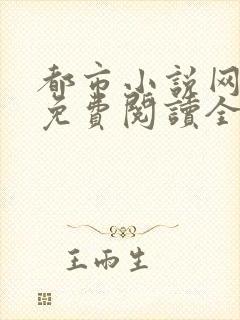 都市小说网
免費閱讀全
王雨生